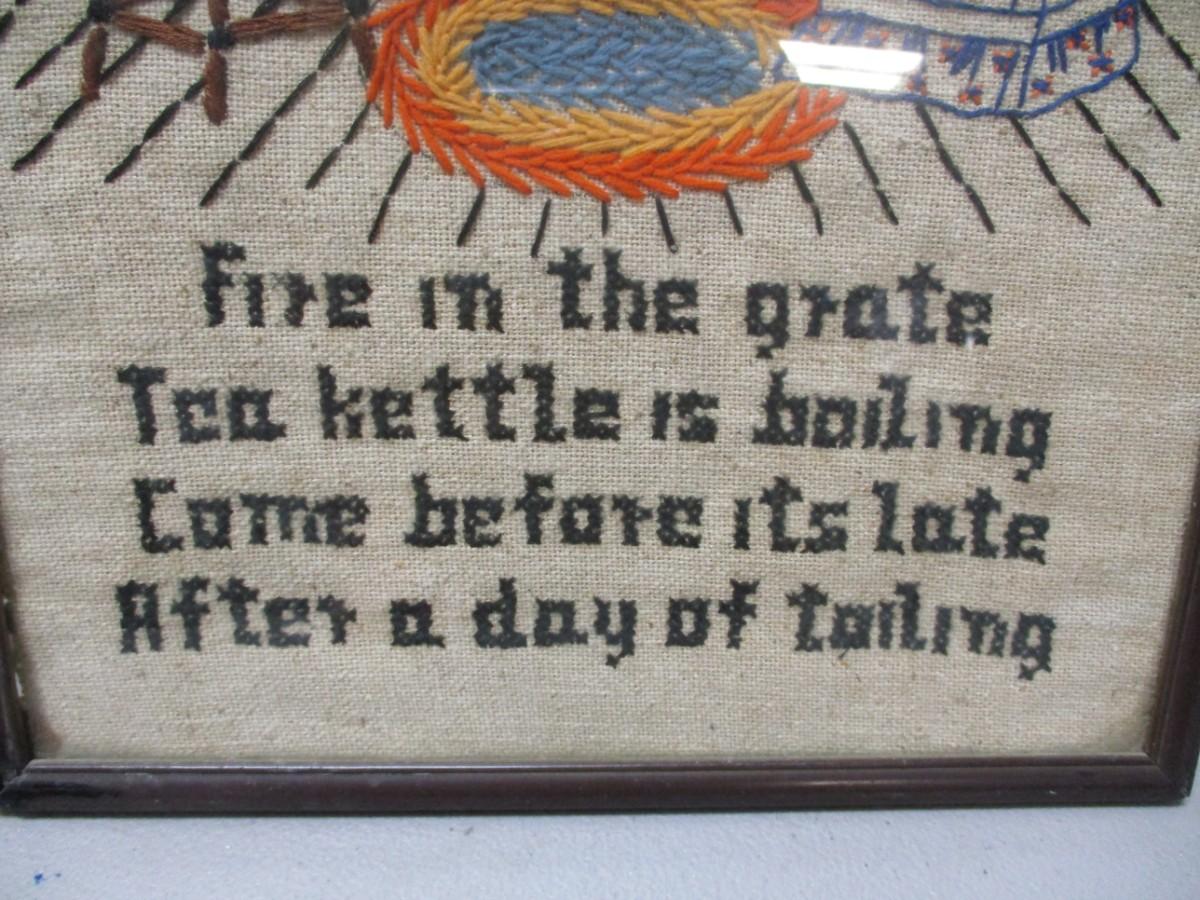 Fire in the grate
Tea kettle is boiling
Come before its late
After a day of toiling